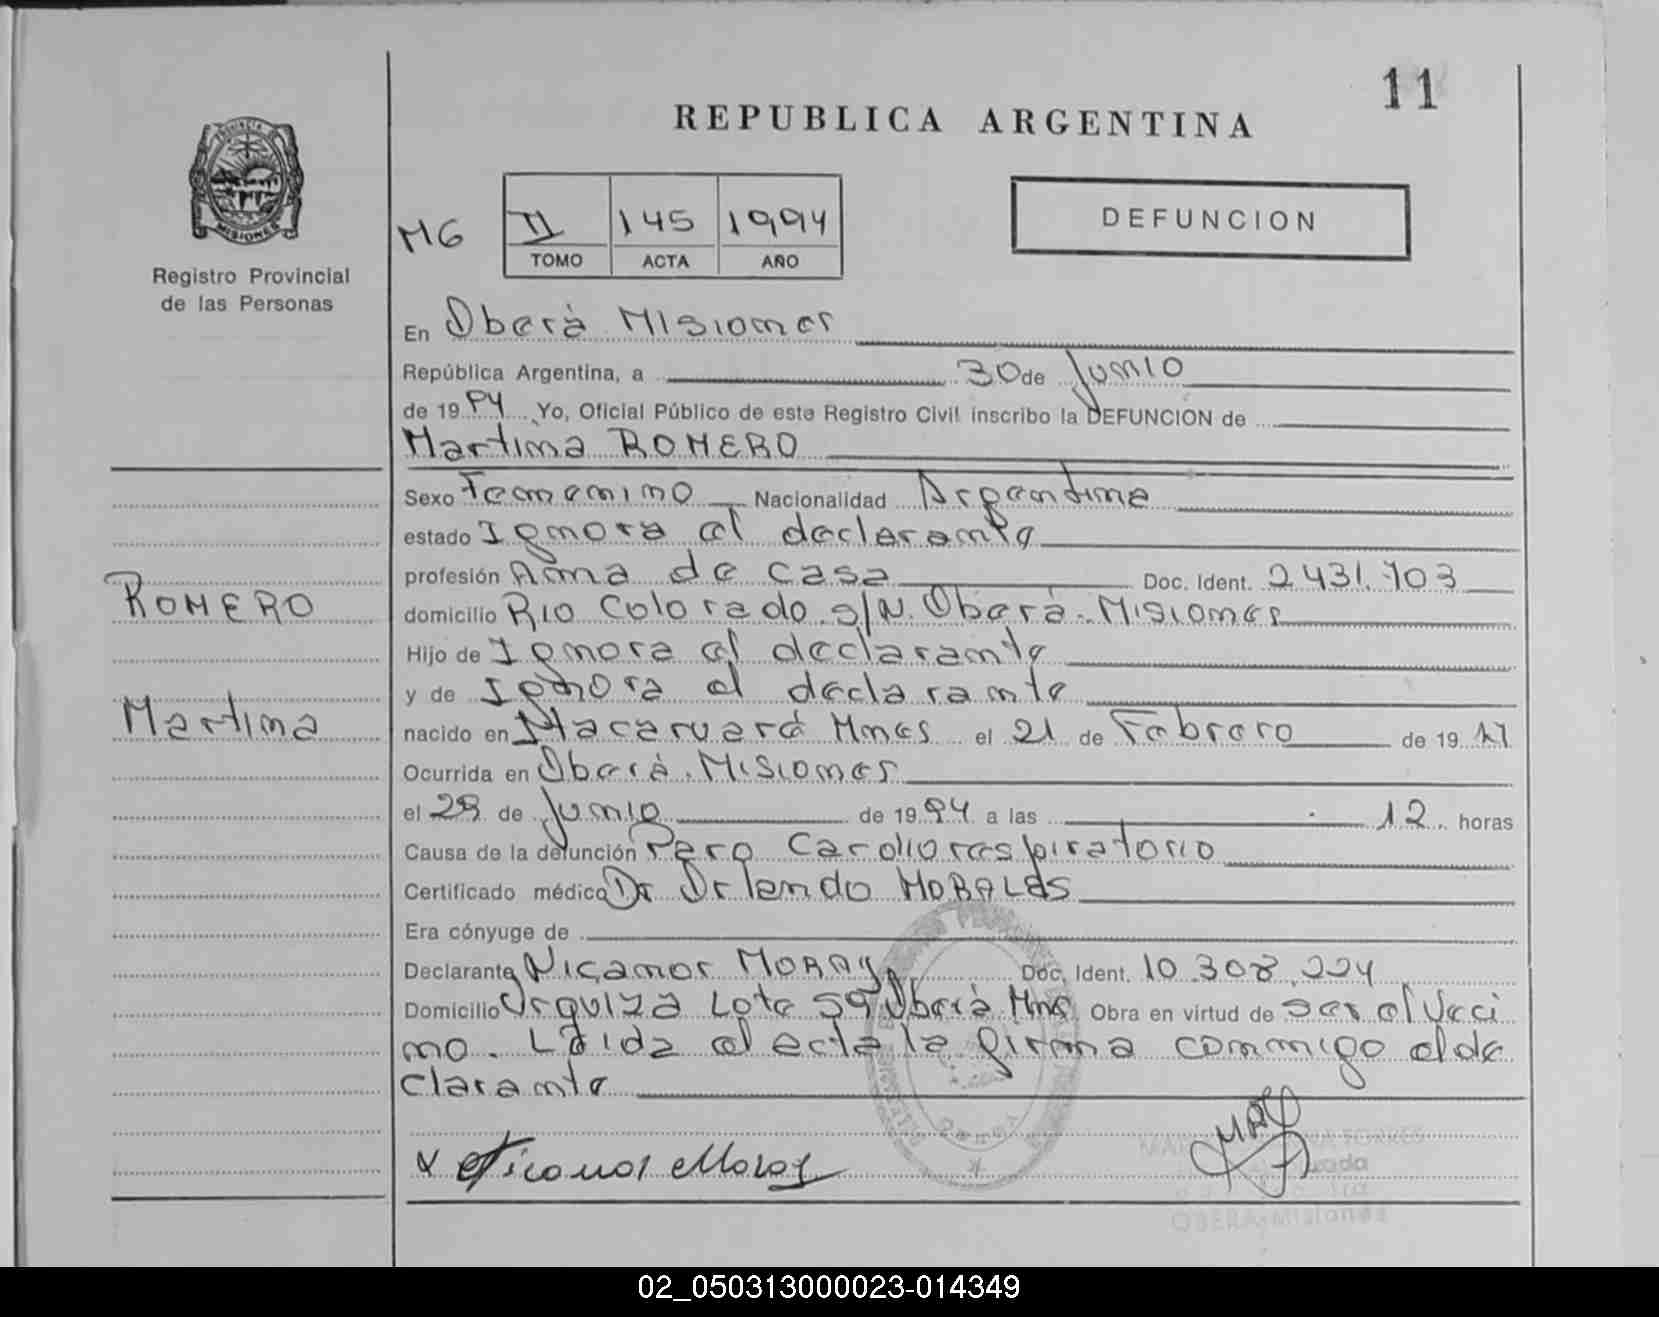 11
REPUBLICA ARGENTINA
PROVINCIA DE
MISIONES
Registro Provincial
de las Personas
MG
II 145 1994
TOMO ACTA AÑO
DEFUNCION
En Oberá Misiones
República Argentina, a 30 de Junio
de 1994 Yo, Oficial Público de este Registro Civil inscribo la DEFUNCION de
Martina ROMERO
Sexo Femenino Nacionalidad Argentina
estado Ignora el declarante
profesión Ama de casa Doc. Ident. 2431.703
ROMERO
domicilio Rio Colorado s/N. Oberá-Misiones
Hijo de Ignora el declarante
y de Ignora el declarante
Martina
nacido en Mnes el 21 de Febrero de 19
Ocurrida en Oberá. Misiones
el de Junio de 1994 a las 12. horas
Causa de la defunción Paro Cardiorespiratorio
Certificado médico Dr Orlando MORALES
Era cónyuge de
Declarante Nicanor Doc. Ident. 10.308.224
Domicilio Urquiza Lote 59 Oberá Mnes Obra en virtud de ser el Veci
no. Leida el acta la firma conmigo el de
clarante
Nicanor
OBERA-Misiones
02_050313000023-014349